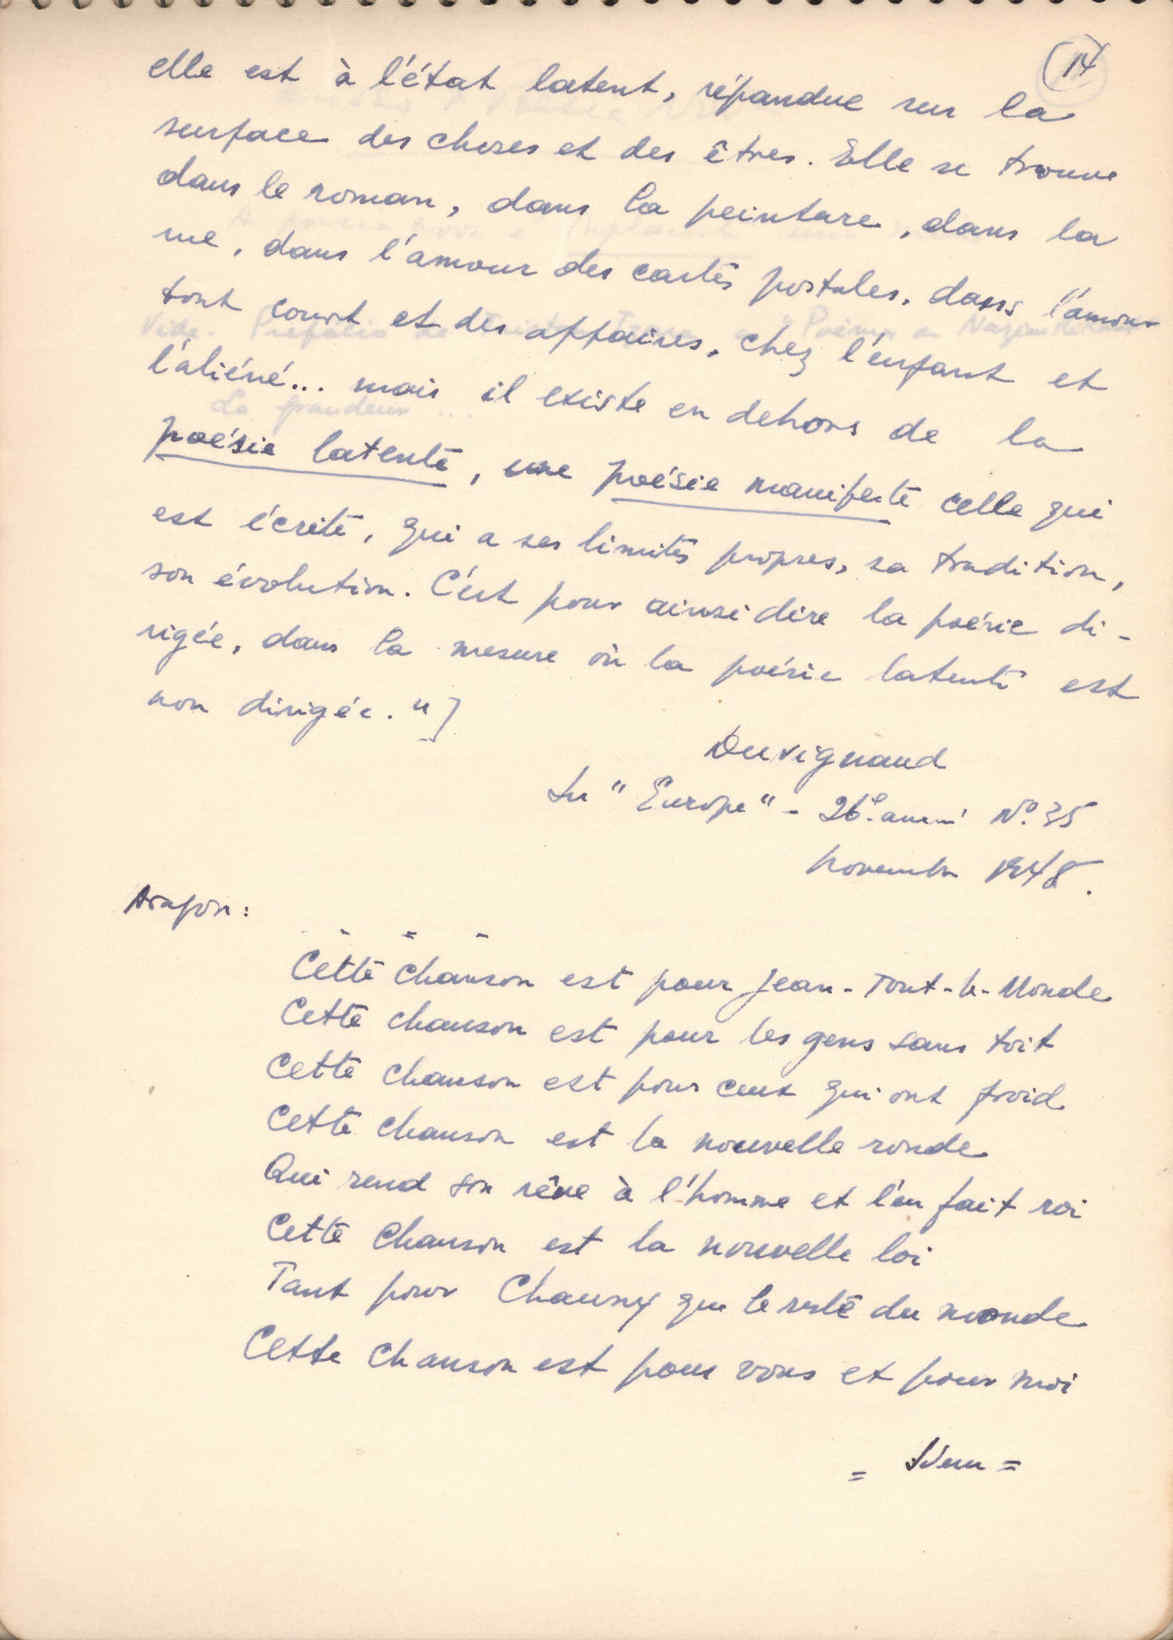 14
elle est à l'état latent, répandue sur la
surface des choses et des êtres. Elle se trouve
dans le roman, dans la peinture, dans la
rue, dans l'amour des cartes postales, dans l'amour
tout court et des affaires, chez l'enfant et
l'aliéné... mais il existe en dehors de la
poésie latente, une poésie manifeste celle qui
est écrite, qui a ses limites propres, sa tradition,
son évolution. C'est pour ainsi dire la poésie di-
rigée, dans la mesure où la poésie latente est
non dirigée."]
Duvignaud
In "Europe" - 26e année No. 35
Novembre 1948.
Aragon:
Cette chanson est pour Jean-Tout-le-Monde
Cette chanson est pour les gens sans toit
Cette chanson est pour ceux qui ont froid
Cette chanson est la nouvelle ronde
Qui rend son rêve à l'homme et l'en fait roi
Cette chanson est la nouvelle loi
Tant pour Chauny que le reste du monde
Cette chanson est pour vous et pour moi
= Idem =